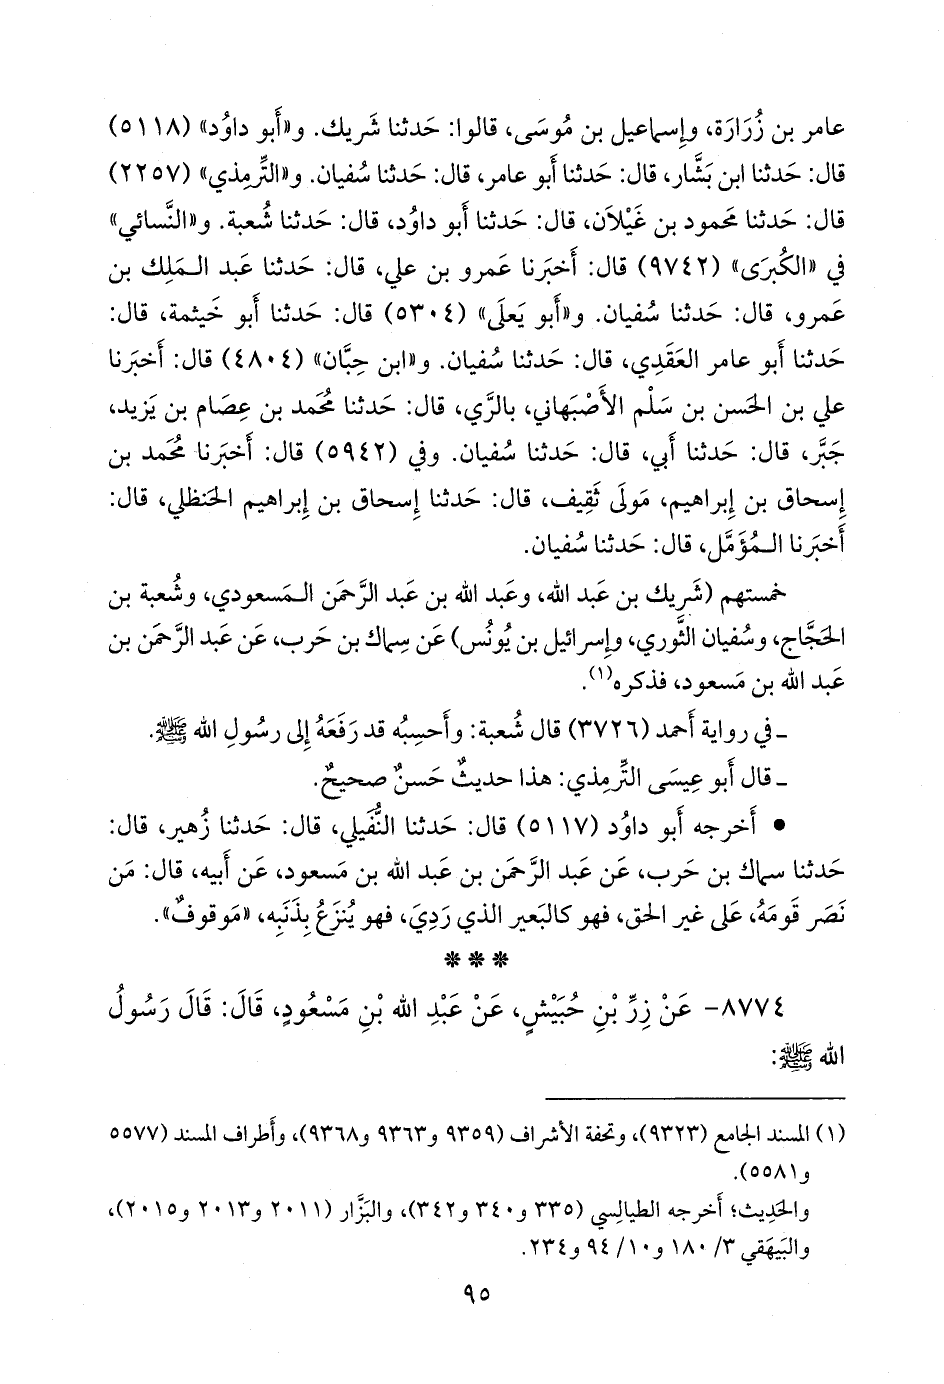 عامر بن زُرَارَة، وإسماعيل بن مُوسَى، قالوا: حَدثنا شَريك. و«أَبو داوُد» (٥١١٨)
قال: حَدثنا ابن بَشَّار، قال: حَدثنا أَبو عامر، قال: حَدثنا سُفيان. و«التِّرمِذي» (٢٢٥٧)
قال: حَدثنا محمود بن غَيْلاَن، قال: حَدثنا أَبو داوُد، قال: حَدثنا شُعبة. و«النَّسائي»
في «الكُبرَى» (٩٧٤٢) قال: أَخبَرنا عَمرو بن علي، قال: حَدثنا عَبد الـمَلِك بن
عَمرو، قال: حَدثنا سُفيان. و«أَبو يَعلَى» (٥٣٠٤) قال: حَدثنا أَبو خَيثمة، قال:
حَدثنا أَبو عامر العَقَدِي، قال: حَدثنا سُفيان. و«ابن حِبَّان» (٤٨٠٤) قال: أَخبَرنا
علي بن الحَسن بن سَلْم الأَصْبَهاني، بالرَّي، قال: حَدثنا مُحمد بن عِصَام بن يَزيد،
جَبَّر، قال: حَدثنا أَبي، قال: حَدثنا سُفيان. وفي (٥٩٤٢) قال: أَخبَرنا مُحمد بن
إِسحاق بن إِبراهيم، مَولَى ثَقِيف، قال: حَدثنا إِسحاق بن إِبراهيم الحَنظلي، قال:
أَخبَرنا الـمُؤَمَّل، قال: حَدثنا سُفيان.
خمستهم (شَريك بن عَبد الله، وعَبد الله بن عَبد الرَّحمَن الـمَسعودي، وشُعبة بن
الحَجَّاج، وسُفيان الثَّوري، وإسرائيل بن يُونُس) عَن سِماك بن حَرب، عَن عَبد الرَّحمَن بن
عَبد الله بن مَسعود، فذكره(١).
ـ في رواية أَحمد (٣٧٢٦) قال شُعبة: وأَحسِبُه قد رَفَعَهُ إلى رسُولِ الله ﷺ.
ـ قال أَبو عِيسَى التِّرمِذي: هذا حديثٌ حَسنٌ صحيحٌ.
• أَخرجه أَبو داوُد (٥١١٧) قال: حَدثنا النُّفَيلي، قال: حَدثنا زُهير، قال:
حَدثنا سماك بن حَرب، عَن عَبد الرَّحمَن بن عَبد الله بن مَسعود، عَن أَبيه، قال: مَن
نَصَر قَومَهُ، عَلى غير الحق، فهو كالبَعير الذي رَدِيَ، فهو يُنزَعُ بِذَنَبِه، «مَوقوفٌ».
* * *
٨٧٧٤- عَنْ زِرِّ بْنِ حُبَيْشٍ، عَنْ عَبْدِ الله بْنِ مَسْعُودٍ، قَالَ: قَالَ رَسُولُ
الله ﷺ:
(١) المسند الجامع (٩٣٢٣)، وتحفة الأشراف (٩٣٥٩ و٩٣٦٣ و٩٣٦٨)، وأَطراف المسند (٥٥٧٧
و٥٥٨١).
والحَدِيث؛ أَخرجه الطيالِسي (٣٣٥ و٣٤٠ و٣٤٢)، والبَزَّار (٢٠١١ و٢٠١٣ و٢٠١٥)،
والبَيهَقي ٣/ ١٨٠ و١٠/ ٩٤ و٢٣٤.
٩٥